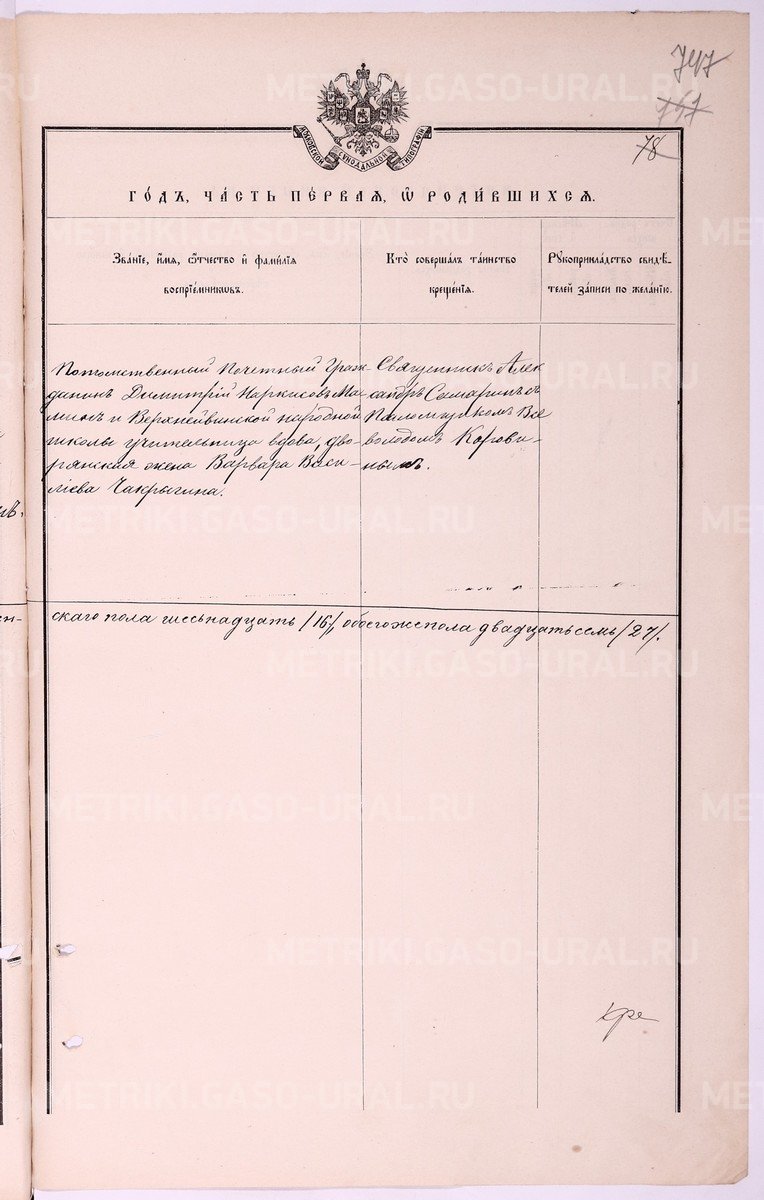 747
757
78
МОСКОВСКОЙ СѴНОДАЛЬНОЙ ТИПОГРАФІИ
ГО́ДЪ, ЧА́СТЬ ПЕ́РВАЯ, Ѽ РОДИ́ВШИХСЯ.
Зва́нїе, и҆́мя, ѻ҆́тчество и҆ фами́лїя
воспрїе́мникѡвъ.
Кто̀ соверша́лъ та́инство
креще́нїя.
Рꙋкоприкла́дство свидѣ́-
телей за́писи по жела́нїю.
Потомственный Почетный Граж-
данинъ Димитрій Наркисовъ Ма-
минъ и Верхнейвинской народной
школы учительница вдова, дво-
рянская жена Варвара Васи-
ліева Чакрыгина.
Священникъ Алек
сандръ Самаринъ съ
Псаломщикомъ Все
володомъ Корови-
нымъ.
скаго пола шестьнадцать /16/, обоего же пола двадцать семь /27/.
METRIKI.GASO-URAL.RU